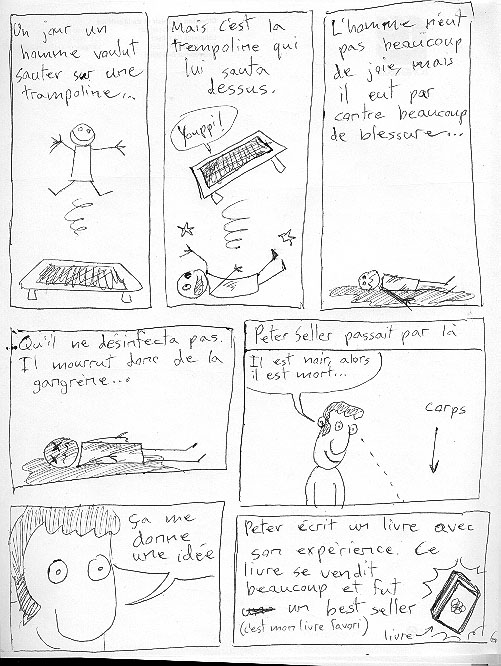 Un jour un
homme voulut
sauter sur une
trampoline...
Mais c'est la
trempoline qui
lui sauta
dessus.
Youppi!
L'homme n'eut
pas beaucoup
de joie, mais
il eut par
contre beaucoup
de blessure...
Qu'il ne désinfecta pas.
Il mourrut donc de la
gangrène...
Peter Seller passait par là
Il est noir, alors
il est mort...
corps
ça me
donne
une idée
Peter écrit un livre avec
son expérience. Ce
livre se vendit
beaucoup et fut
un best seller
(c'est mon livre favori)
livre